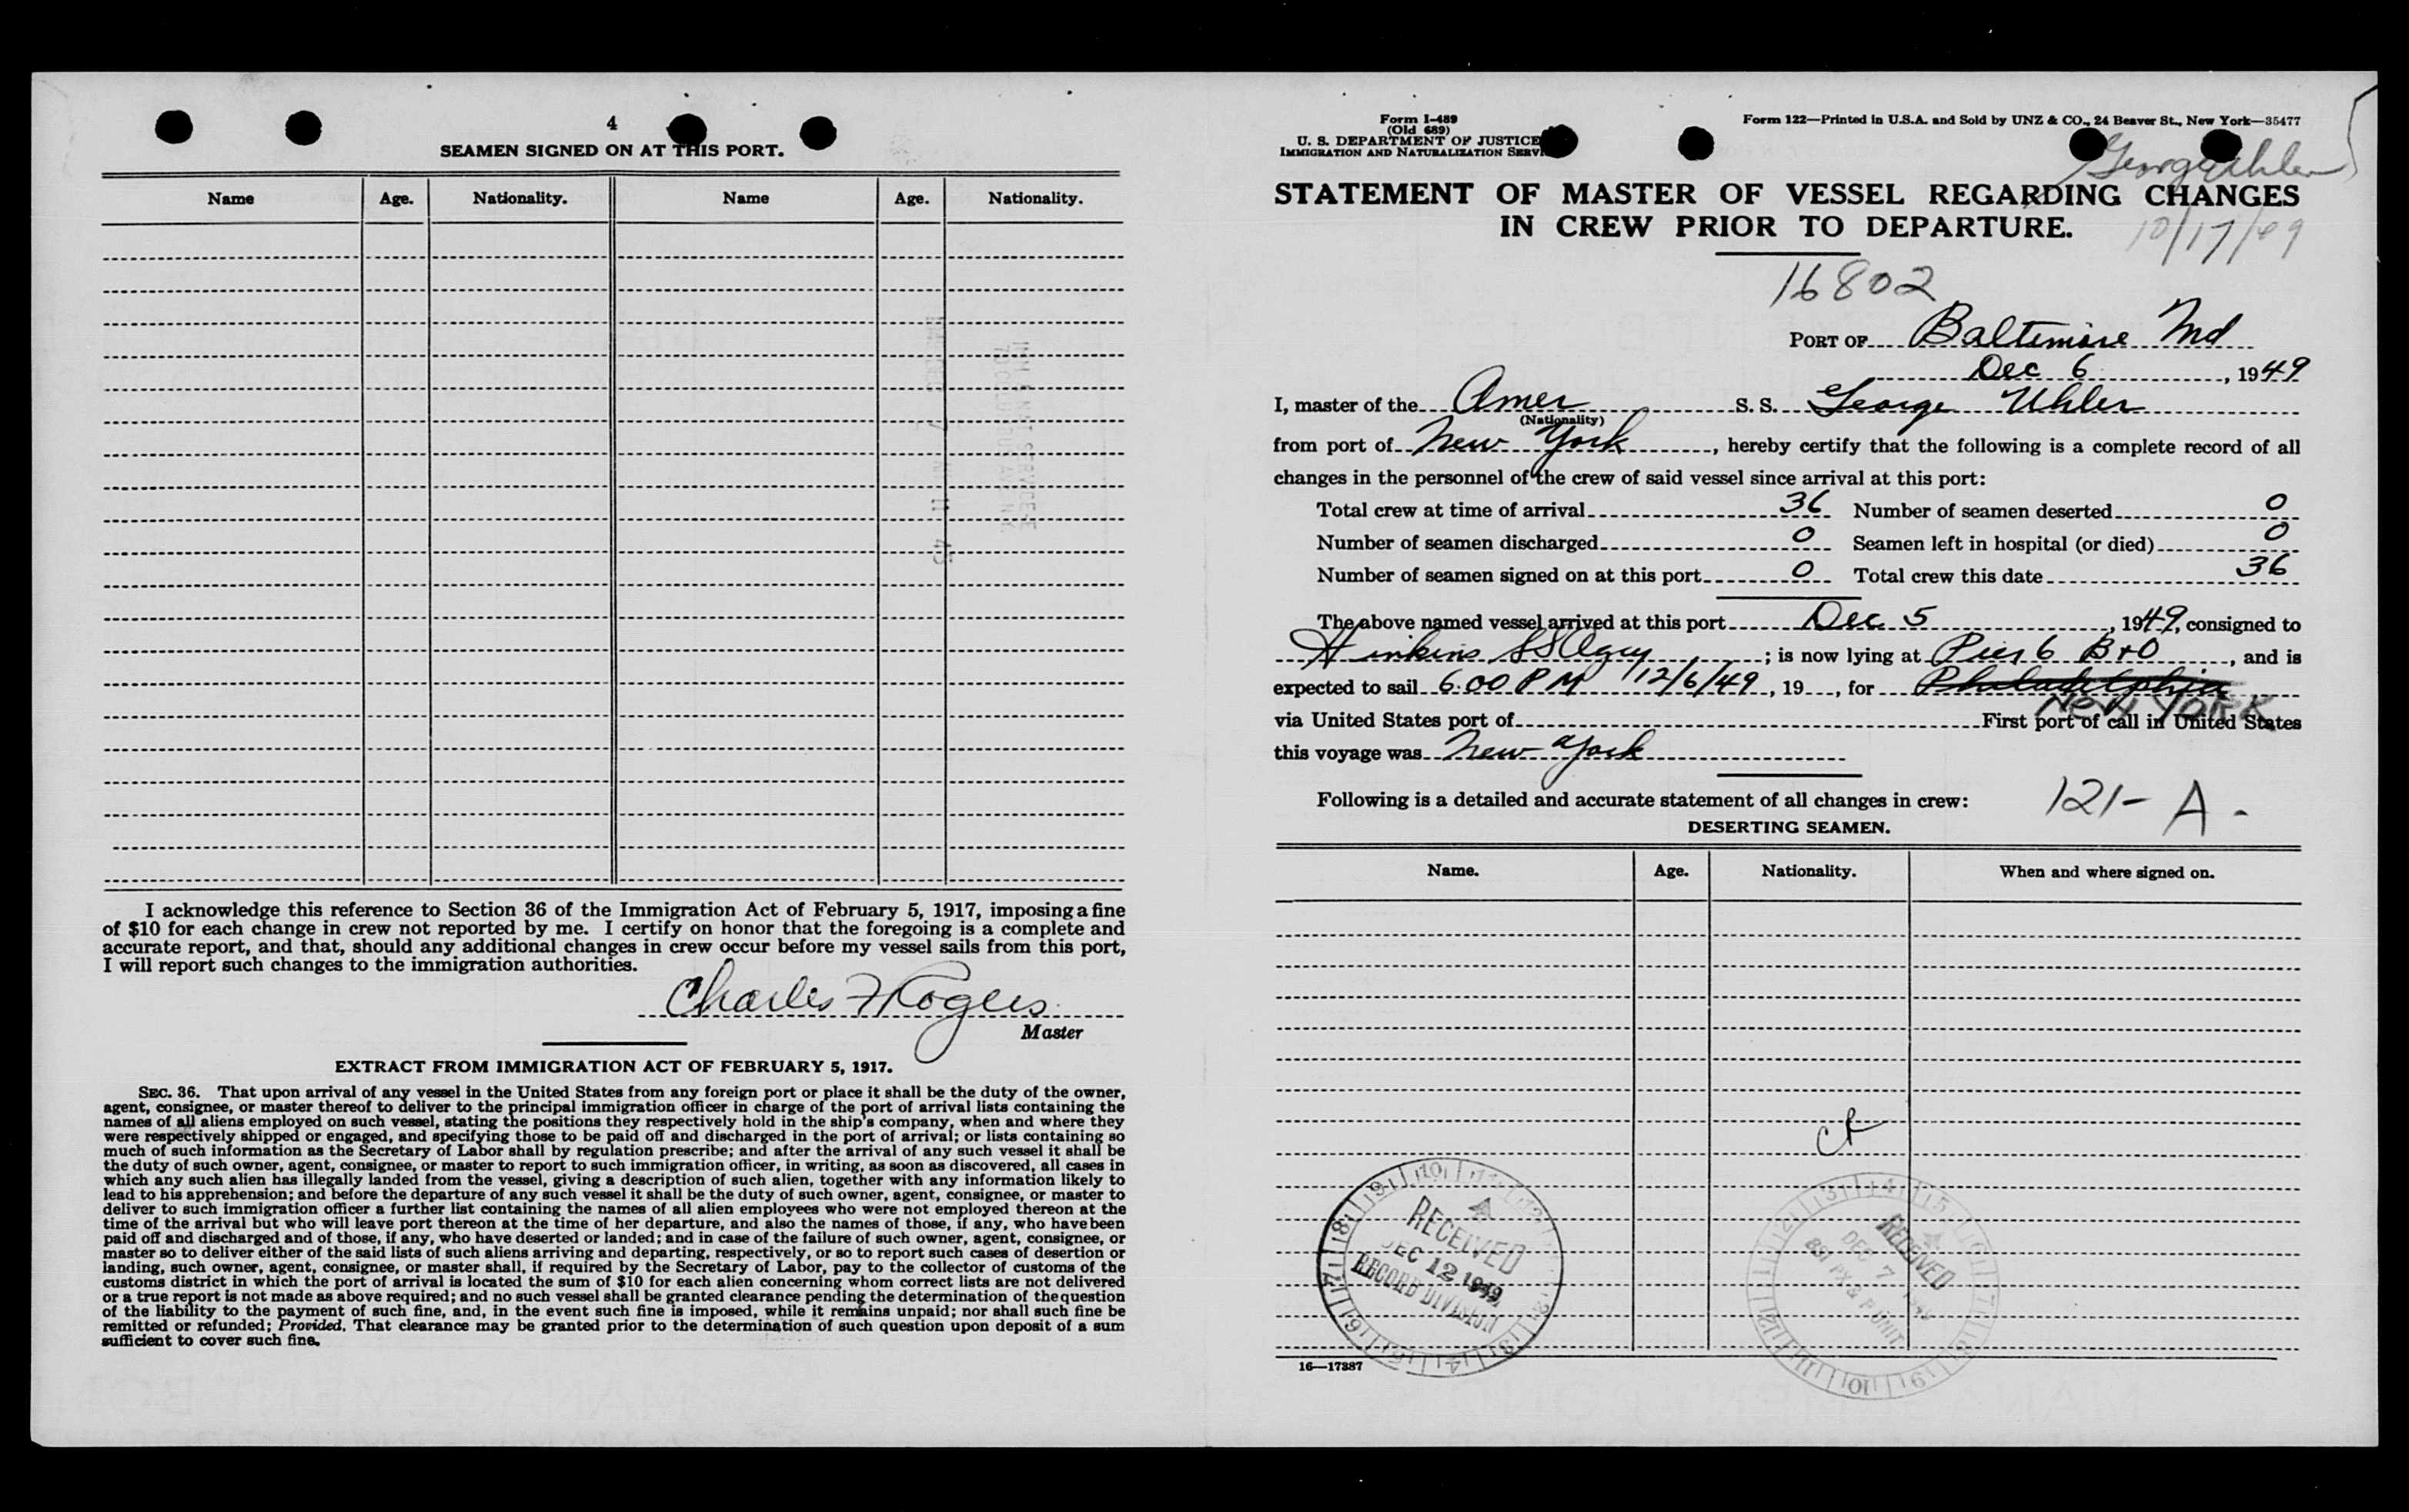 4
SEAMEN SIGNED ON AT THIS PORT.
Name Age. Nationality. Name Age. Nationality.
I acknowledge this reference to Section 36 of the Immigration Act of February 5, 1917, imposing a fine
of $10 for each change in crew not reported by me. I certify on honor that the foregoing is a complete and
accurate report, and that, should any additional changes in crew occur before my vessel sails from this port,
I will report such changes to the immigration authorities.
Charles F Rogers
Master
EXTRACT FROM IMMIGRATION ACT OF FEBRUARY 5, 1917.
SEC. 36. That upon arrival of any vessel in the United States from any foreign port or place it shall be the duty of the owner,
agent, consignee, or master thereof to deliver to the principal immigration officer in charge of the port of arrival lists containing the
names of all aliens employed on such vessel, stating the positions they respectively hold in the ship's company, when and where they
were respectively shipped or engaged, and specifying those to be paid off and discharged in the port of arrival; or lists containing so
much of such information as the Secretary of Labor shall by regulation prescribe; and after the arrival of any such vessel it shall be
the duty of such owner, agent, consignee, or master to report to such immigration officer, in writing, as soon as discovered, all cases in
which any such alien has illegally landed from the vessel, giving a description of such alien, together with any information likely to
lead to his apprehension; and before the departure of any such vessel it shall be the duty of such owner, agent, consignee, or master to
deliver to such immigration officer a further list containing the names of all alien employees who were not employed thereon at the
time of the arrival but who will leave port thereon at the time of her departure, and also the names of those, if any, who have been
paid off and discharged and of those, if any, who have deserted or landed; and in case of the failure of such owner, agent, consignee, or
master so to deliver either of the said lists of such aliens arriving and departing, respectively, or so to report such cases of desertion or
landing, such owner, agent, consignee, or master shall, if required by the Secretary of Labor, pay to the collector of customs of the
customs district in which the port of arrival is located the sum of $10 for each alien concerning whom correct lists are not delivered
or a true report is not made as above required; and no such vessel shall be granted clearance pending the determination of the question
of the liability to the payment of such fine, and, in the event such fine is imposed, while it remains unpaid; nor shall such fine be
remitted or refunded; Provided, That clearance may be granted prior to the determination of such question upon deposit of a sum
sufficient to cover such fine.
Form I-489
(Old 689)
U. S. DEPARTMENT OF JUSTICE
IMMIGRATION AND NATURALIZATION SERVI
Form 122—Printed in U.S.A. and Sold by UNZ & CO., 24 Beaver St., New York—35477
George Uhler
STATEMENT OF MASTER OF VESSEL REGARDING CHANGES
IN CREW PRIOR TO DEPARTURE.
10/17/49
16802
PORT OF Baltimore Md
Dec 6, 1949
I, master of the Amer S. S. George Uhler
(Nationality)
from port of New York, hereby certify that the following is a complete record of all
changes in the personnel of the crew of said vessel since arrival at this port:
Total crew at time of arrival 36 Number of seamen deserted 0
Number of seamen discharged 0 Seamen left in hospital (or died) 0
Number of seamen signed on at this port 0 Total crew this date 36
The above named vessel arrived at this port Dec 5, 1949, consigned to
Hinkins SS Agcy; is now lying at Pier 6 B+O, and is
expected to sail 6:00 PM 12/6/49, 19, for Philadelphia
New York
via United States port of First port of call in United States
this voyage was New York
Following is a detailed and accurate statement of all changes in crew:
121-A-
DESERTING SEAMEN.
Name. Age. Nationality. When and where signed on.
RECEIVED
DEC 12 1949
RECORD DIVISION
RECEIVED
DEC 7
16—17387